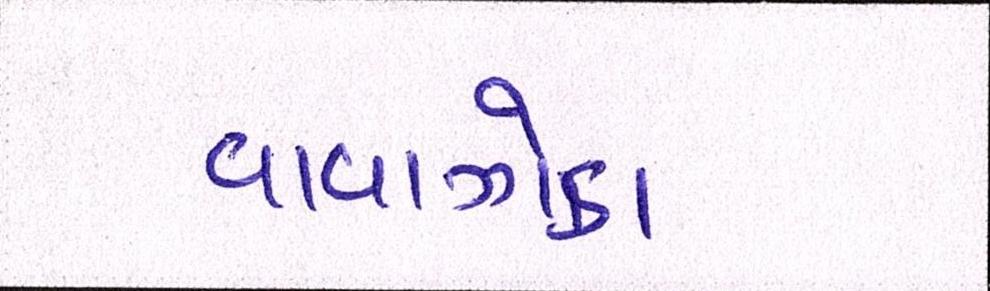 વાવાઝોડા